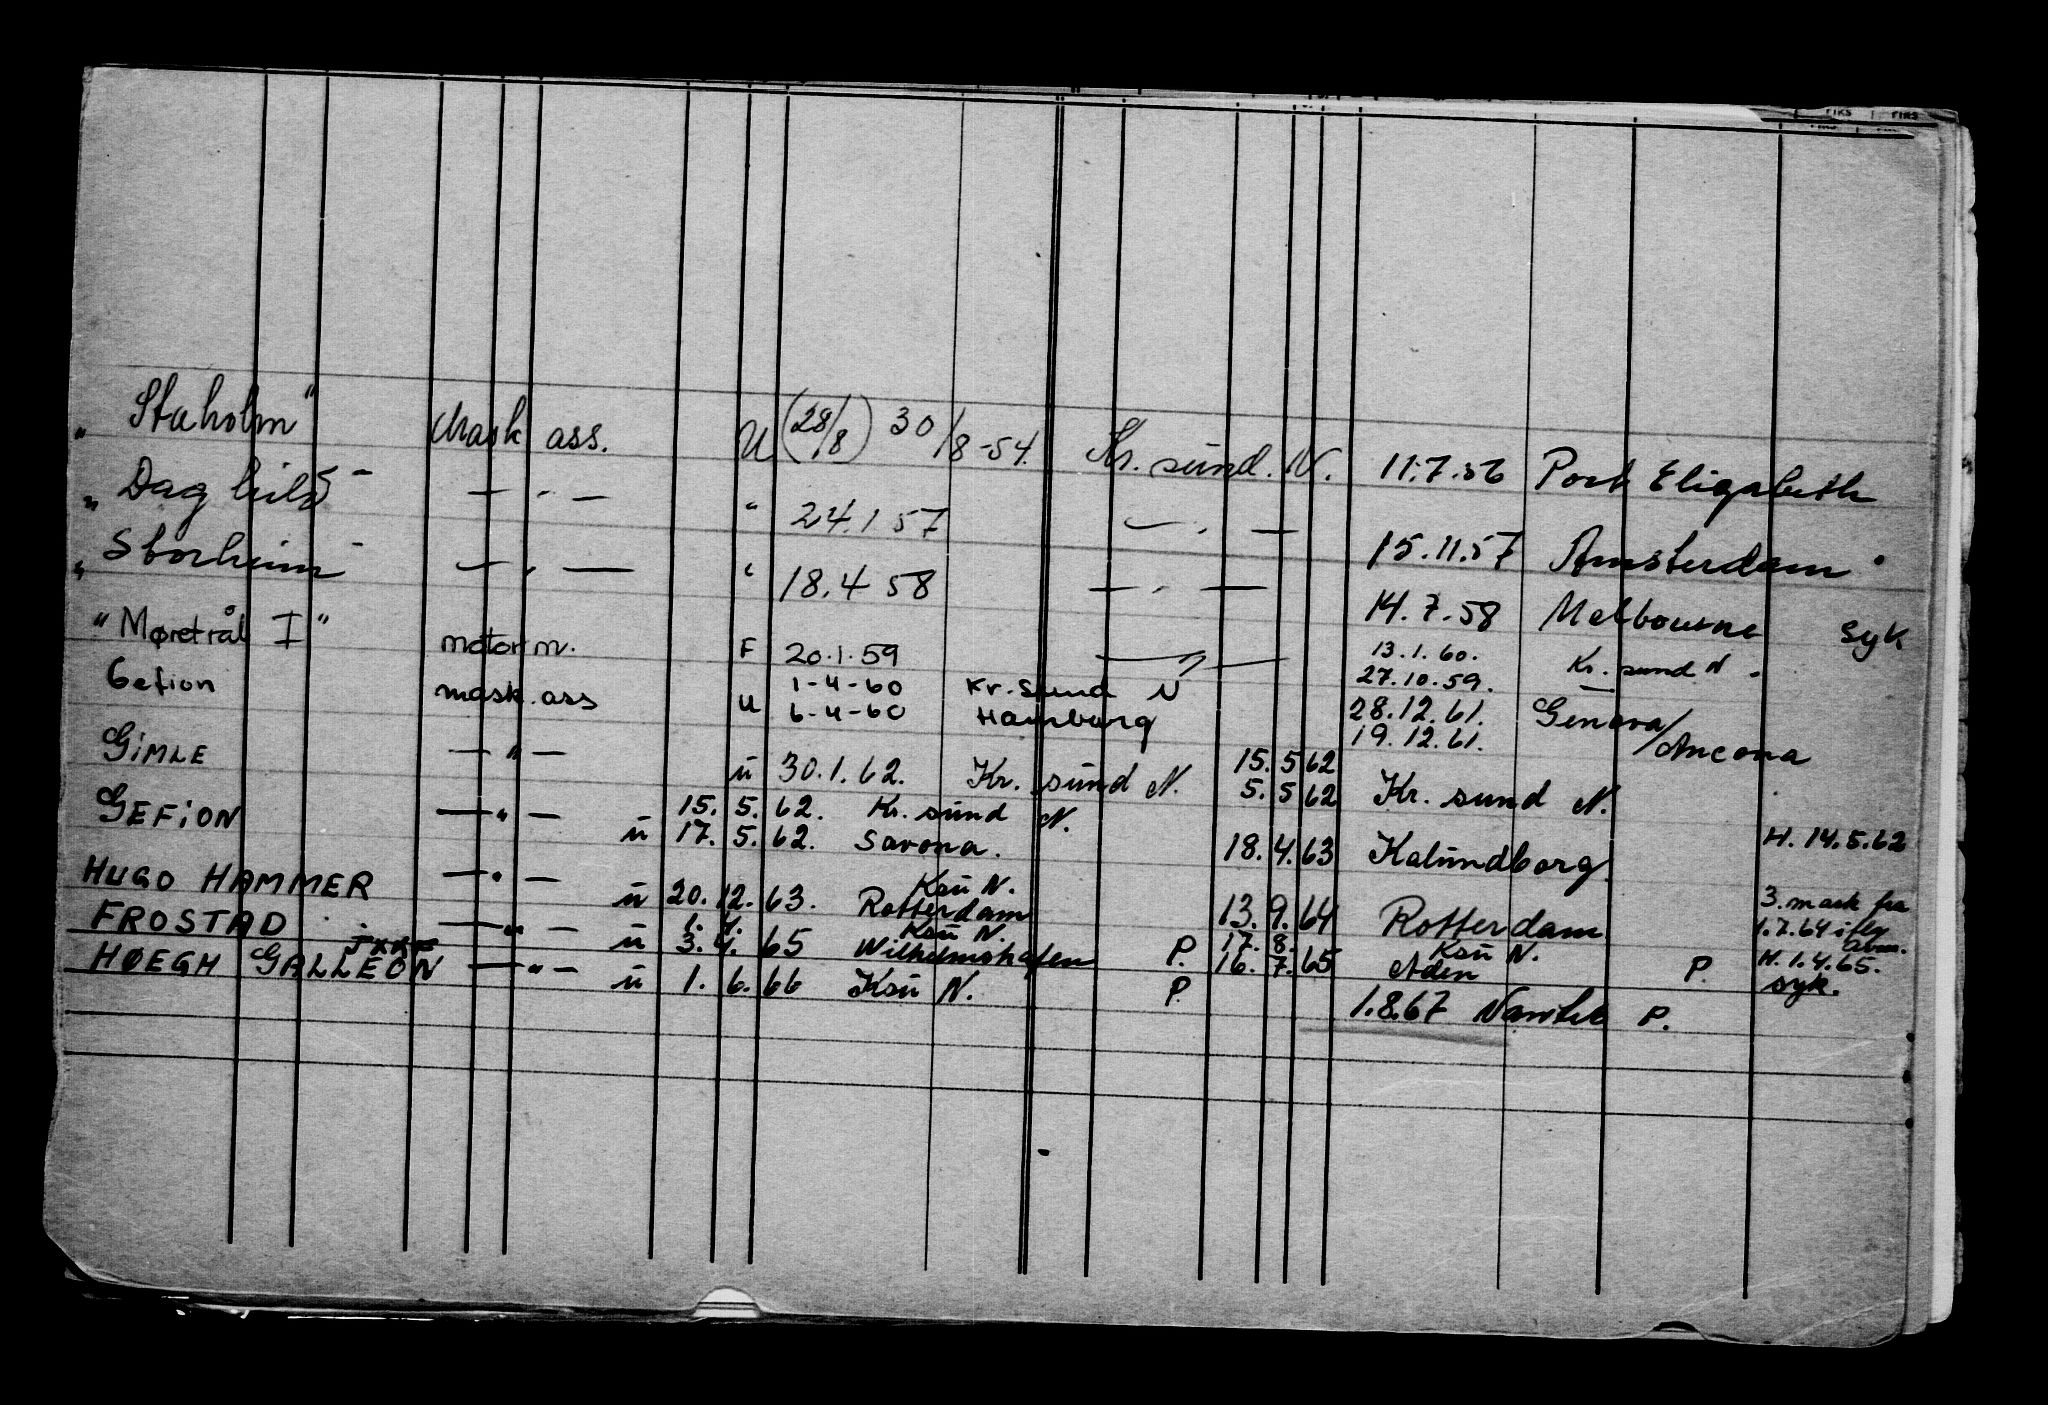 "Staholm" Mask ass. U (28/8) 30/8-54. Kr. sund. N. 11.7.56 Port Elizabeth
"Daghild" — " — " 24.1 57 — " — 15.11.57 Amsterdam
"Storheim" — " — " 18.4 58 — " — 14.7.58 Melbourne syk
"Møretrål I" motorm. F 20.1.59 — " — 13.1.60. Kr. sund N.
27.10.59. —
Gefion mask. ass U 1-4-60 Kr. sund N 28.12.61. Genova/
6-4-60 Hamburg 19.12.61. Ancona
GIMLE — " — ü 30.1.62. Kr. sünd N. 15.5 62
5.5 62 Kr. sünd N.
GEFION — " — 15.5.62. Kr. sünd N.
ü 17.5.62. Savona. 18.4.63 Kalundborg. H. 14.5.62
HUGO HAMMER — " — Ksü N.
ü 20.12.63. Rotterdam 13.9.64 Rotterdam 3. mask fra
1.7.64 i flg
FROSTAD — " — 1.4. Ksü N. 17.8. Ksü N.
ü 3.4.65 Wilhelmshafen P. 16.7.65 Aden P. H. 1.4.65.
syk.
HØEGH GALLEON — " — ü 1.6.66 Ksü N. P. 1.8.67 P.